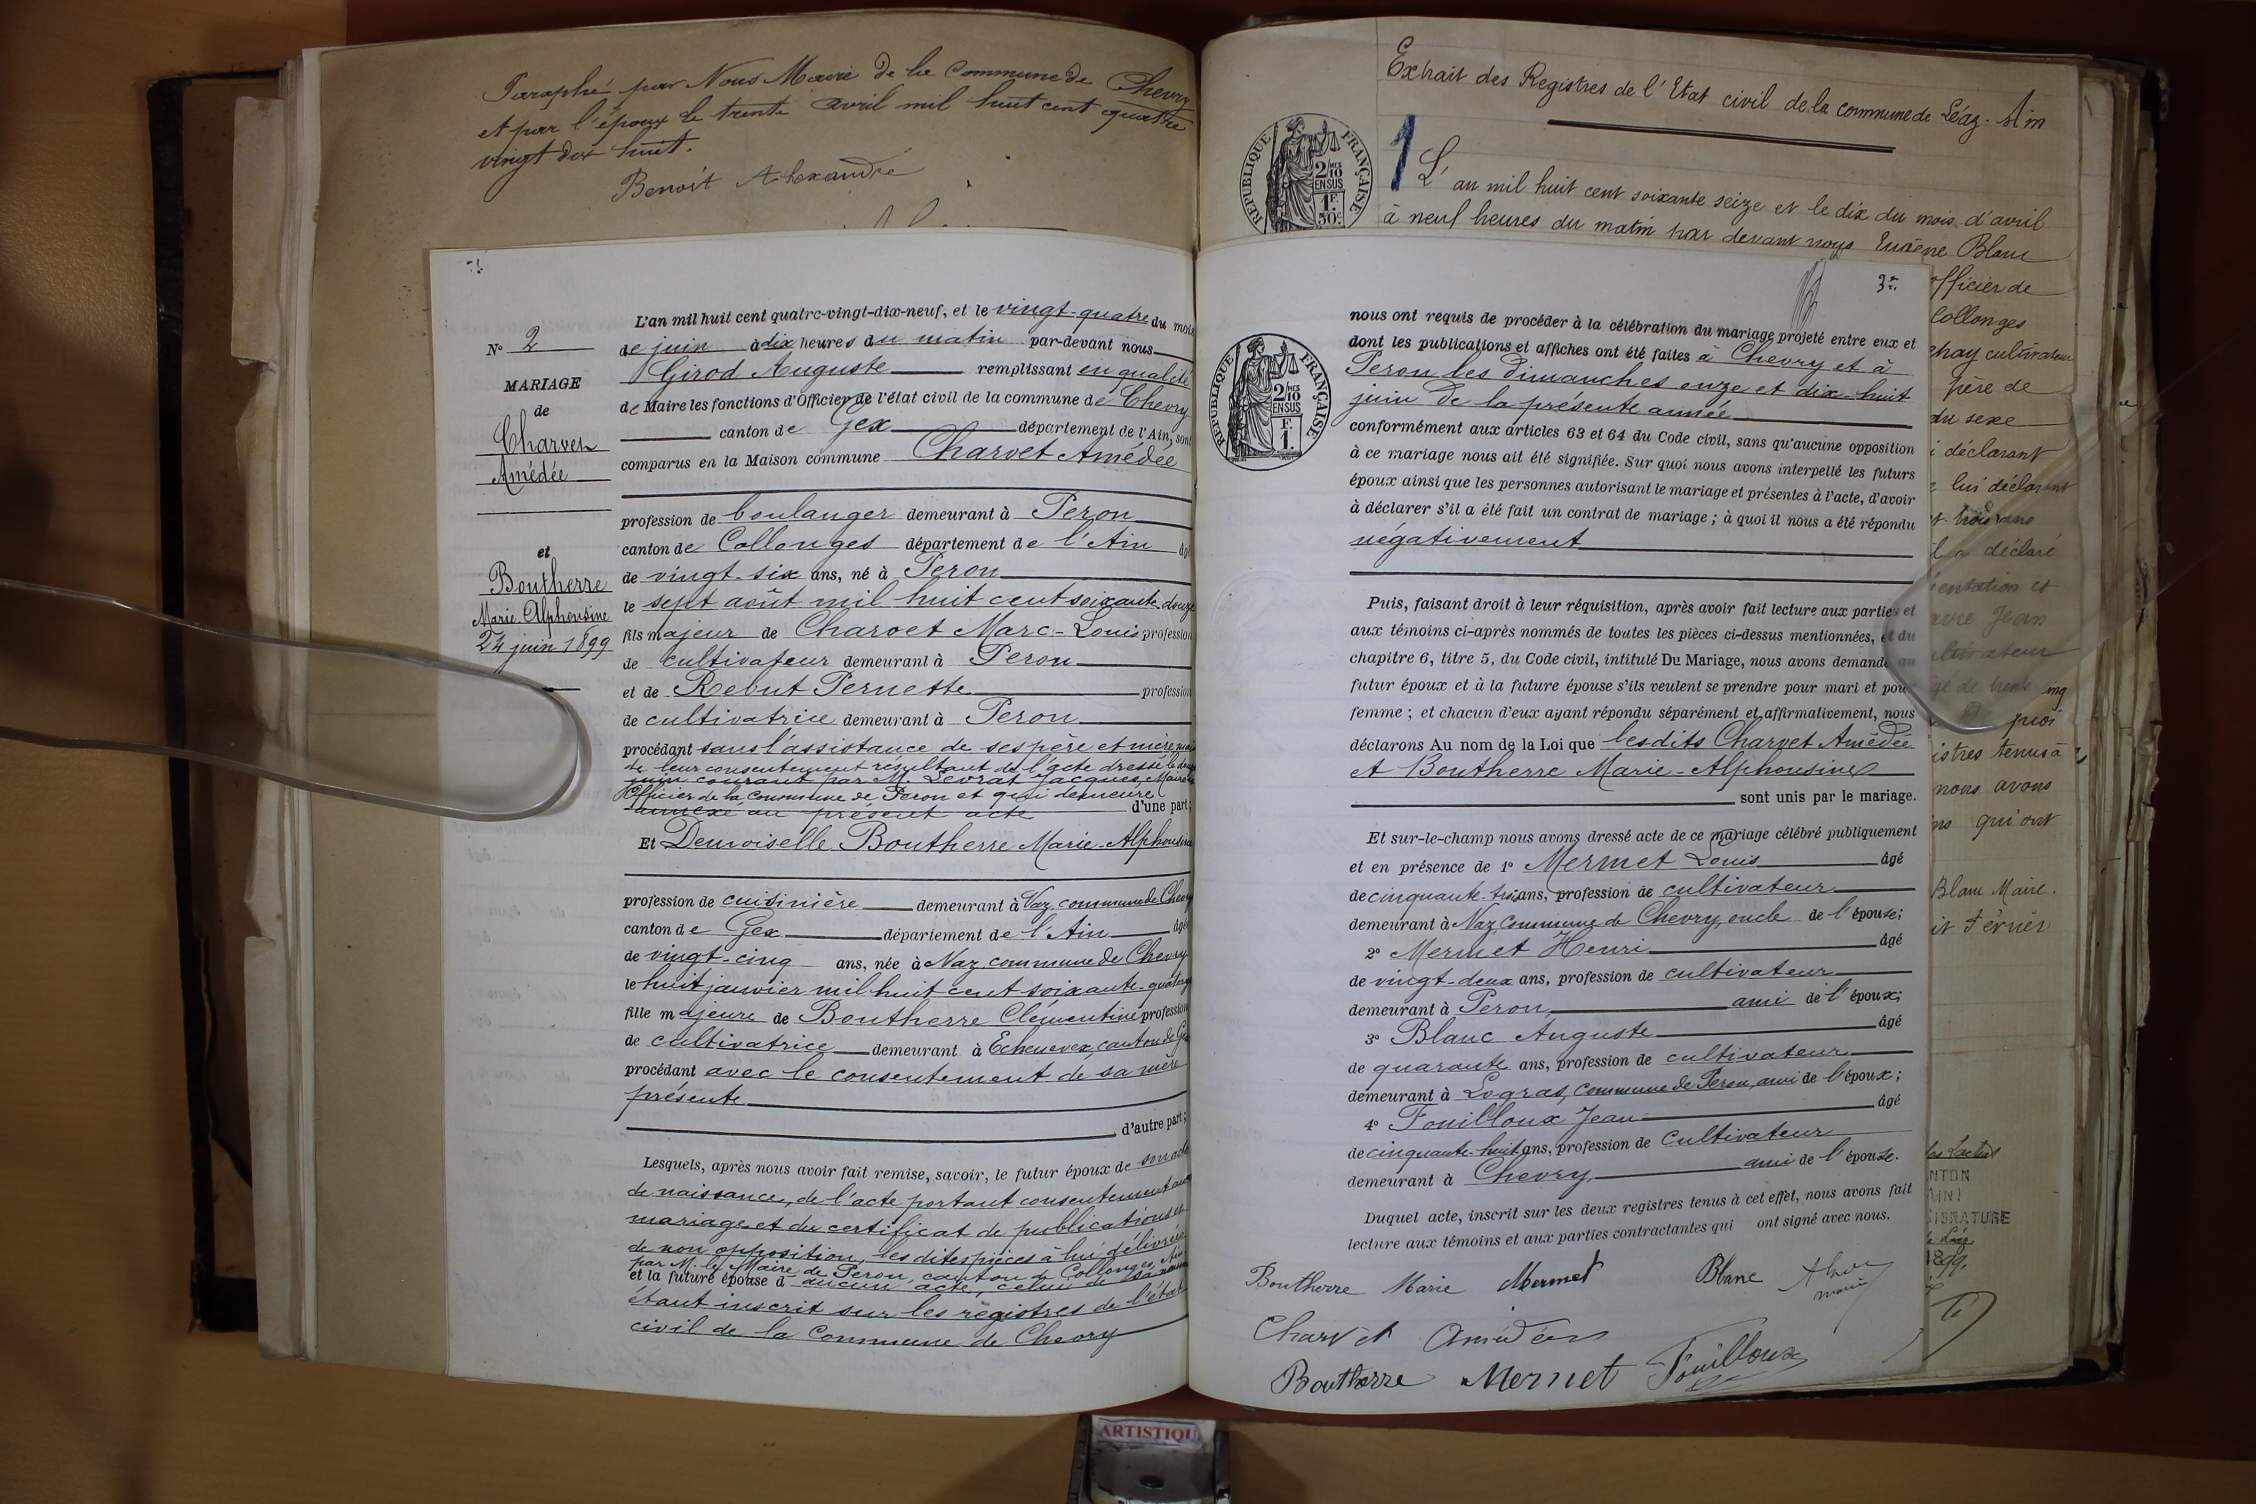 Paraphé par Nous Maire de la Commune de Chevry
et par l'époux le trente avril mil huit cent quatre
vingt dix huit.
Benoit Alexandre
N° 2
MARIAGE
de
Charvet
Amédée
et
Boutherre
Marie-Alphonsine
24 juin 1899
L'an mil huit cent quatre-vingt-dix-neuf, et le vingt-quatre du mois
de juin à dix heures du matin par-devant nous
Girod Auguste remplissant en qualité
de Maire les fonctions d'Officier de l'état civil de la commune de Chevry
canton de Gex département de l'Ain, sont
comparus en la Maison commune Charvet Amédée
profession de boulanger demeurant à Peron
canton de Collonges département de l'Ain âgé
de vingt-six ans, né à Peron
le sept août mil huit cent soixante-douze
fils majeur de Charvet Marc-Louis profession
de cultivateur demeurant à Peron
et de Rebut Pernette profession
de cultivatrice demeurant à Peron
procédant sans l'assistance de ses père et mère mais
de leur consentement résultant de l'acte dressé le
juin courant par M. Levrat Jacques, Maire
Officier de la commune de Peron et qui demeure
annexé au présent acte d'une part;
Et Demoiselle Boutherre Marie-Alphonsine
profession de cuisinière demeurant à Naz, commune de Chevry
canton de Gex département de l'Ain âgée
de vingt-cinq ans, née à Naz, commune de Chevry
le huit janvier mil huit cent soixante-quatorze
fille majeure de Boutherre Clémentine profession
de cultivatrice demeurant à Echenevex, canton de Gex
procédant avec le consentement de sa mère
présente
d'autre part;
Lesquels, après nous avoir fait remise, savoir, le futur époux de son acte
de naissance, de l'acte portant consentement au
mariage et du certificat de publications et
de non opposition, les dites pièces à lui délivrées
par M. le Maire de Peron, canton de Collonges, Ain
et la future épouse d'aucun acte, celui de sa naissance
étant inscrit sur les registres de l'état
civil de la Commune de Chevry
Extrait des Registres de l'Etat civil de la commune de Léaz - Ain
1
RÉPUBLIQUE FRANÇAISE
2/10 EN SUS
1F.50c
L'an mil huit cent soixante seize et le dix du mois d'avril
à neuf heures du matin par devant nous Eugène Blanc
officier de
Collonges
cultivateur
père de
du sexe
déclarant
lui déclarant
a déclaré
Jean
cultivateur
de trente
quoi
istres tenus à
nous avons
qui ont
Blanc Maire.
3e
RÉPUBLIQUE FRANÇAISE
2/10 EN SUS
F. 1.
nous ont requis de procéder à la célébration du mariage projeté entre eux et
dont les publications et affiches ont été faites à Chevry et à
Peron les dimanches onze et dix-huit
juin de la présente année
conformément aux articles 63 et 64 du Code civil, sans qu'aucune opposition
à ce mariage nous ait été signifiée. Sur quoi nous avons interpellé les futurs
époux ainsi que les personnes autorisant le mariage et présentes à l'acte, d'avoir
à déclarer s'il a été fait un contrat de mariage ; à quoi il nous a été répondu
négativement
Puis, faisant droit à leur réquisition, après avoir fait lecture aux parties et
aux témoins ci-après nommés de toutes les pièces ci-dessus mentionnées, et du
chapitre 6, titre 5, du Code civil, intitulé Du Mariage, nous avons demandé au
futur époux et à la future épouse s'ils veulent se prendre pour mari et pour
femme ; et chacun d'eux ayant répondu séparément et affirmativement, nous
déclarons Au nom de la Loi que lesdits Charvet Amédée
et Boutherre Marie-Alphonsine
sont unis par le mariage.
Et sur-le-champ nous avons dressé acte de ce mariage célébré publiquement
et en présence de 1° Mermet Louis âgé
de cinquante-trois ans, profession de cultivateur
demeurant à Naz, Commune de Chevry, oncle de l'épouse;
2° Mermet Henri âgé
de vingt-deux ans, profession de cultivateur
demeurant à Peron, ami de l'époux;
3° Blanc Auguste âgé
de quarante ans, profession de cultivateur
demeurant à Logras, commune de Peron, ami de l'époux;
4° Fouilloux Jean âgé
de cinquante-huit ans, profession de cultivateur
demeurant à Chevry, ami de l'épouse.
Duquel acte, inscrit sur les deux registres tenus à cet effet, nous avons fait
lecture aux témoins et aux parties contractantes qui ont signé avec nous.
Boutherre Marie Mermet Blanc
Charvet Amédée
Boutherre Mermet Fouilloux
SIGNATURE
1899.
ARTISTIQU